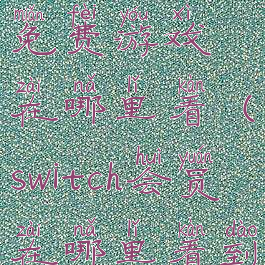 miǎn fèi yóu xì
免费游戏
zài nǎ lǐ kàn
在哪里看（
huì yuán
switch会员
zài nǎ lǐ kàn dào
在哪里看到